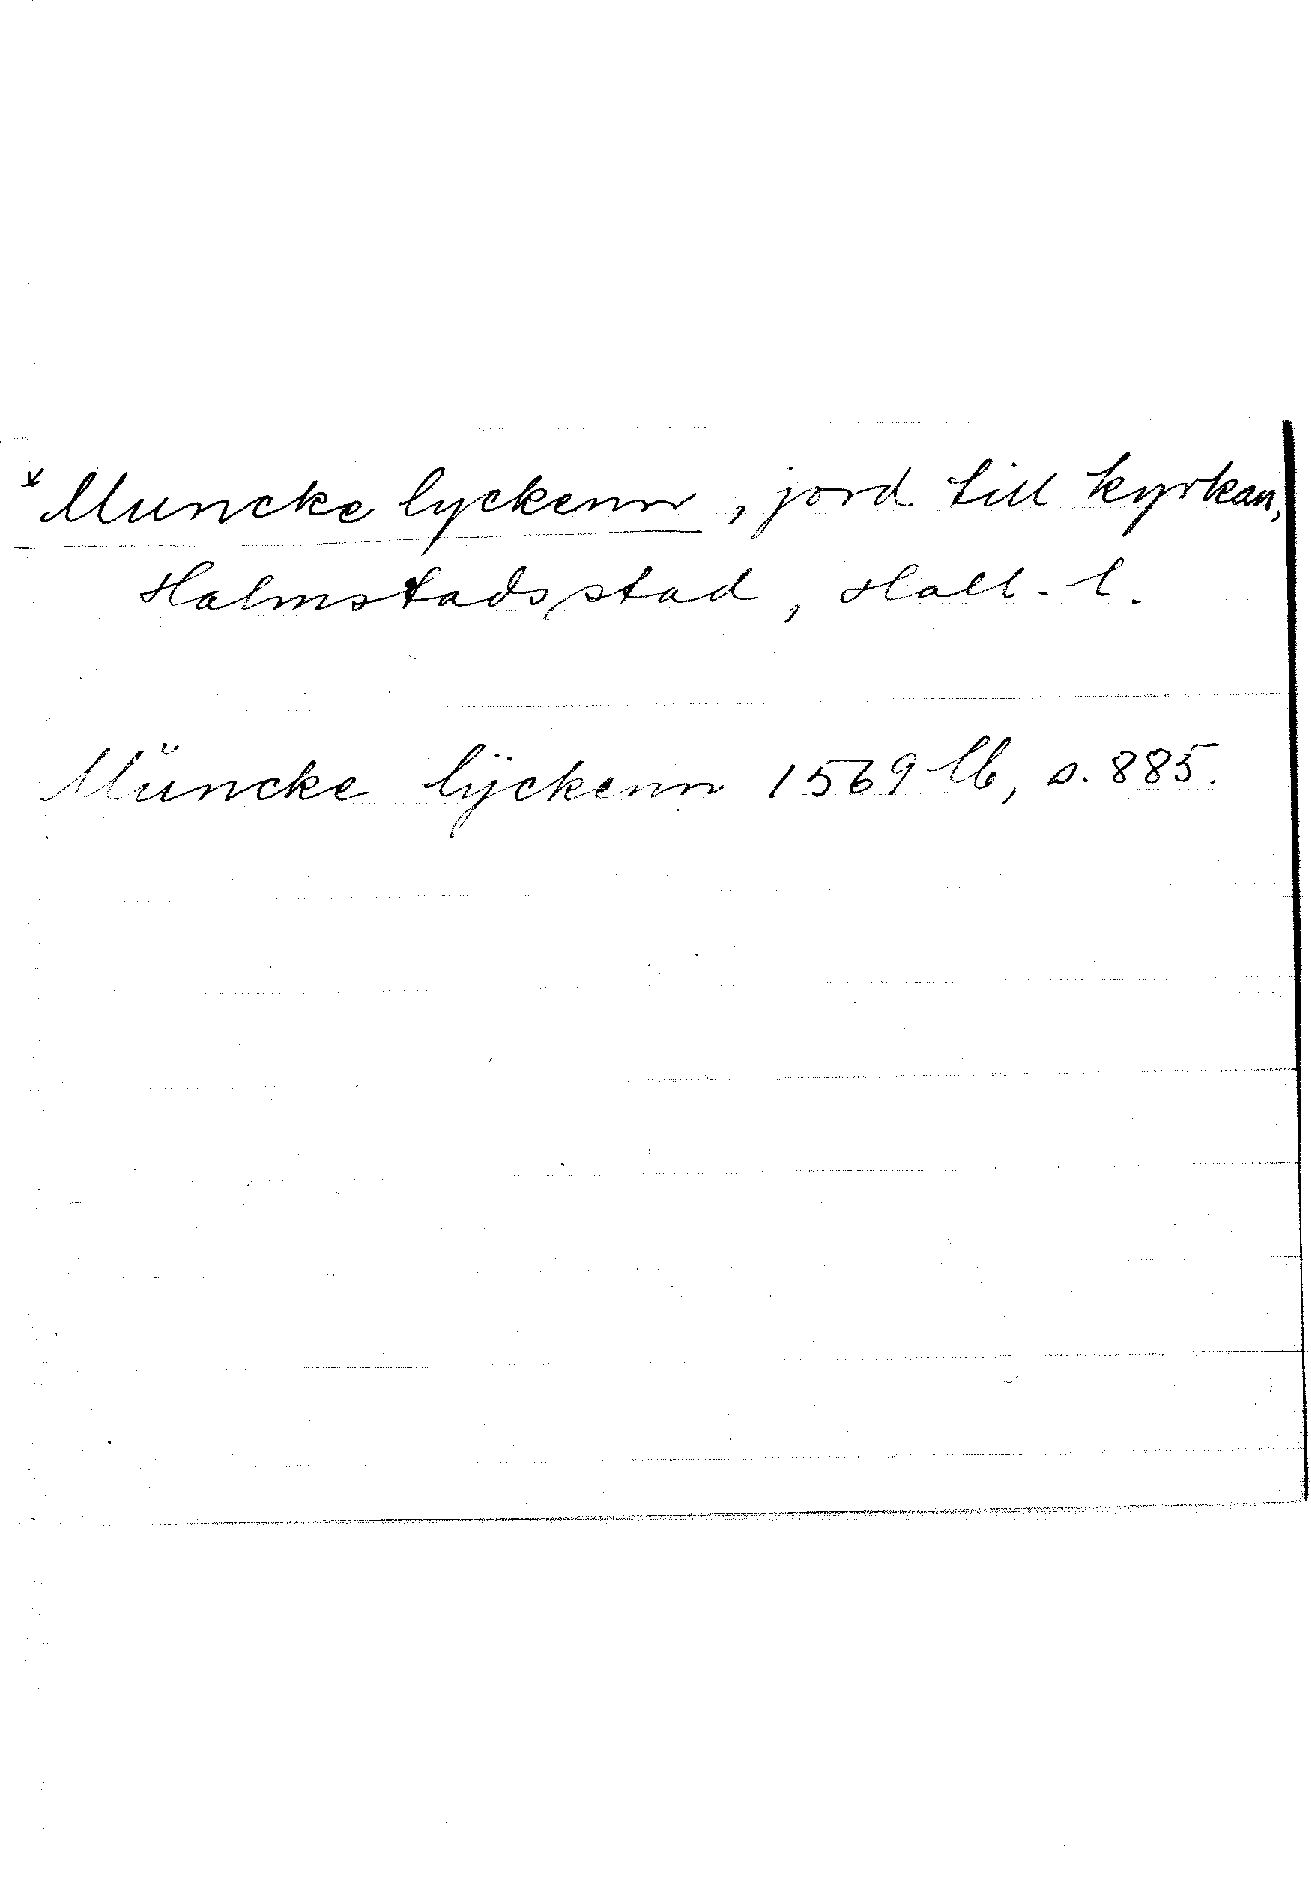 * Muncke lyckenn, jord till kyrkan,
Halmstads stad, Hall. l.
Müncke lÿckenn 1569 lb, s. 885.